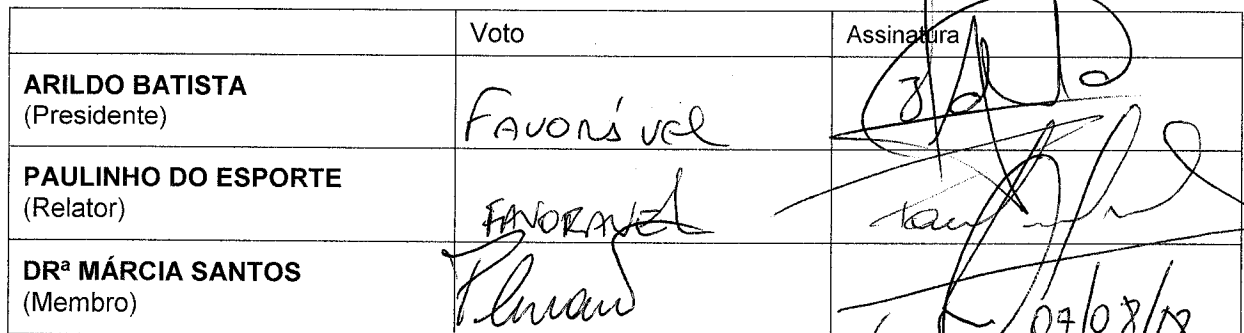 Voto Assinatura
ARILDO BATISTA
(Presidente) Favorável
PAULINHO DO ESPORTE
(Relator) FAVORAVEL
DRª MÁRCIA SANTOS
(Membro)
07/08/18